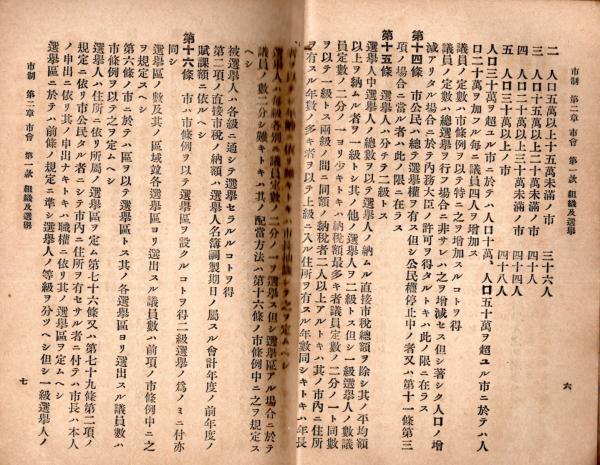 市制 第二章 市會 第一款 組織及選擧
二 人口五萬以上十五萬未滿ノ市 三十六人
三 人口十五萬以上二十萬未滿ノ市 四十人
四 人口二十萬以上三十萬未滿ノ市 四十四人
五 人口三十萬以上ノ市 四十八人
人口三十萬ヲ超ユル市ニ於テハ人口十萬、人口五十萬ヲ超ユル市ニ於テハ人
口二十萬ヲ加フル每ニ議員四人ヲ增加ス
議員ノ定數ハ市條例ヲ以テ特ニ之ヲ增減スルコトヲ得
議員ノ定數ハ總選擧ヲ行フ場合ニ非サレハ之ヲ增減セス但シ著シク人口ノ增
減アリタル場合ニ於テ內務大臣ノ許可ヲ得タルトキハ此ノ限ニ在ラス
第十四條 市公民ハ總テ選擧權ヲ有ス但シ公民權停止中ノ者又ハ第十一條第三
項ノ場合ニ當ル者ハ此ノ限ニ在ラス
第十五條 選擧人ハ分チテ二級トス
選擧人中選擧人ノ總數ヲ以テ選擧人ノ納ムル直接市稅總額ヲ除シ其ノ平均額
以上ヲ納ムル者ヲ一級トシ其ノ他ノ選擧人ヲ二級トス但シ一級選擧人ノ數議
員定數ノ二分ノ一ヨリ少キトキハ納稅額最多キ者議員定數ノ二分ノ一ト同數
ヲ以テ一級トス
級トス兩級ノ間ニ同額ノ納稅者二人以上アルトキハ其ノ市內ニ住所
ヲ有スル年數ノ多キ者ヲ以テ上級ニ入ル住所ヲ有スル年數同シキトキハ年長
六
者ヲ以テシ年齡ニ依リ難キトキハ市長抽籤シテ之ヲ定ムヘシ
選擧人ハ每級各別ニ議員定數ノ二分ノ一ヲ選擧ス但シ選擧區アル場合ニ於テ
議員ノ數二分シ難キトキハ其ノ配當方法ハ第十六條ノ市條例中ニ之ヲ規定ス
ヘシ
被選擧人ハ各級ニ通シテ選擧セラルルコトヲ得
第二項ノ直接市稅ノ納額ハ選擧人名簿調製期日ノ屬スル會計年度ノ前年度ノ
賦課額ニ依ルヘシ
第十六條 市ハ市條例ヲ以テ選擧區ヲ設クルコトヲ得二級選擧ノ爲ノミニ付亦
同シ
選擧區ノ數及其ノ區域竝各選擧區ヨリ選出スル議員數ハ前項ノ市條例中ニ之
ヲ規定スヘシ
第六條ノ市ニ於テハ區ヲ以テ選擧區トス其ノ各選擧區ヨリ選出スル議員數ハ
市條例ヲ以テ之ヲ定ムヘシ
選擧人ハ住所ニ依リ所屬ノ選擧區ヲ定ム第七十六條又ハ第七十九條第二項ノ
規定ニ依リ市公民タル者ニシテ市內ニ住所ヲ有セサル者ニ付テハ市長ハ本人
ノ申出ニ依リ其ノ申出ナキトキハ職權ニ依リ其ノ選擧區ヲ定ムヘシ
選擧區ニ於テハ前條ノ規定ニ準シ選擧人ノ等級ヲ分ツヘシ但シ一級選擧人ノ
市制 第二章 市會 第一款 組織及選擧
七